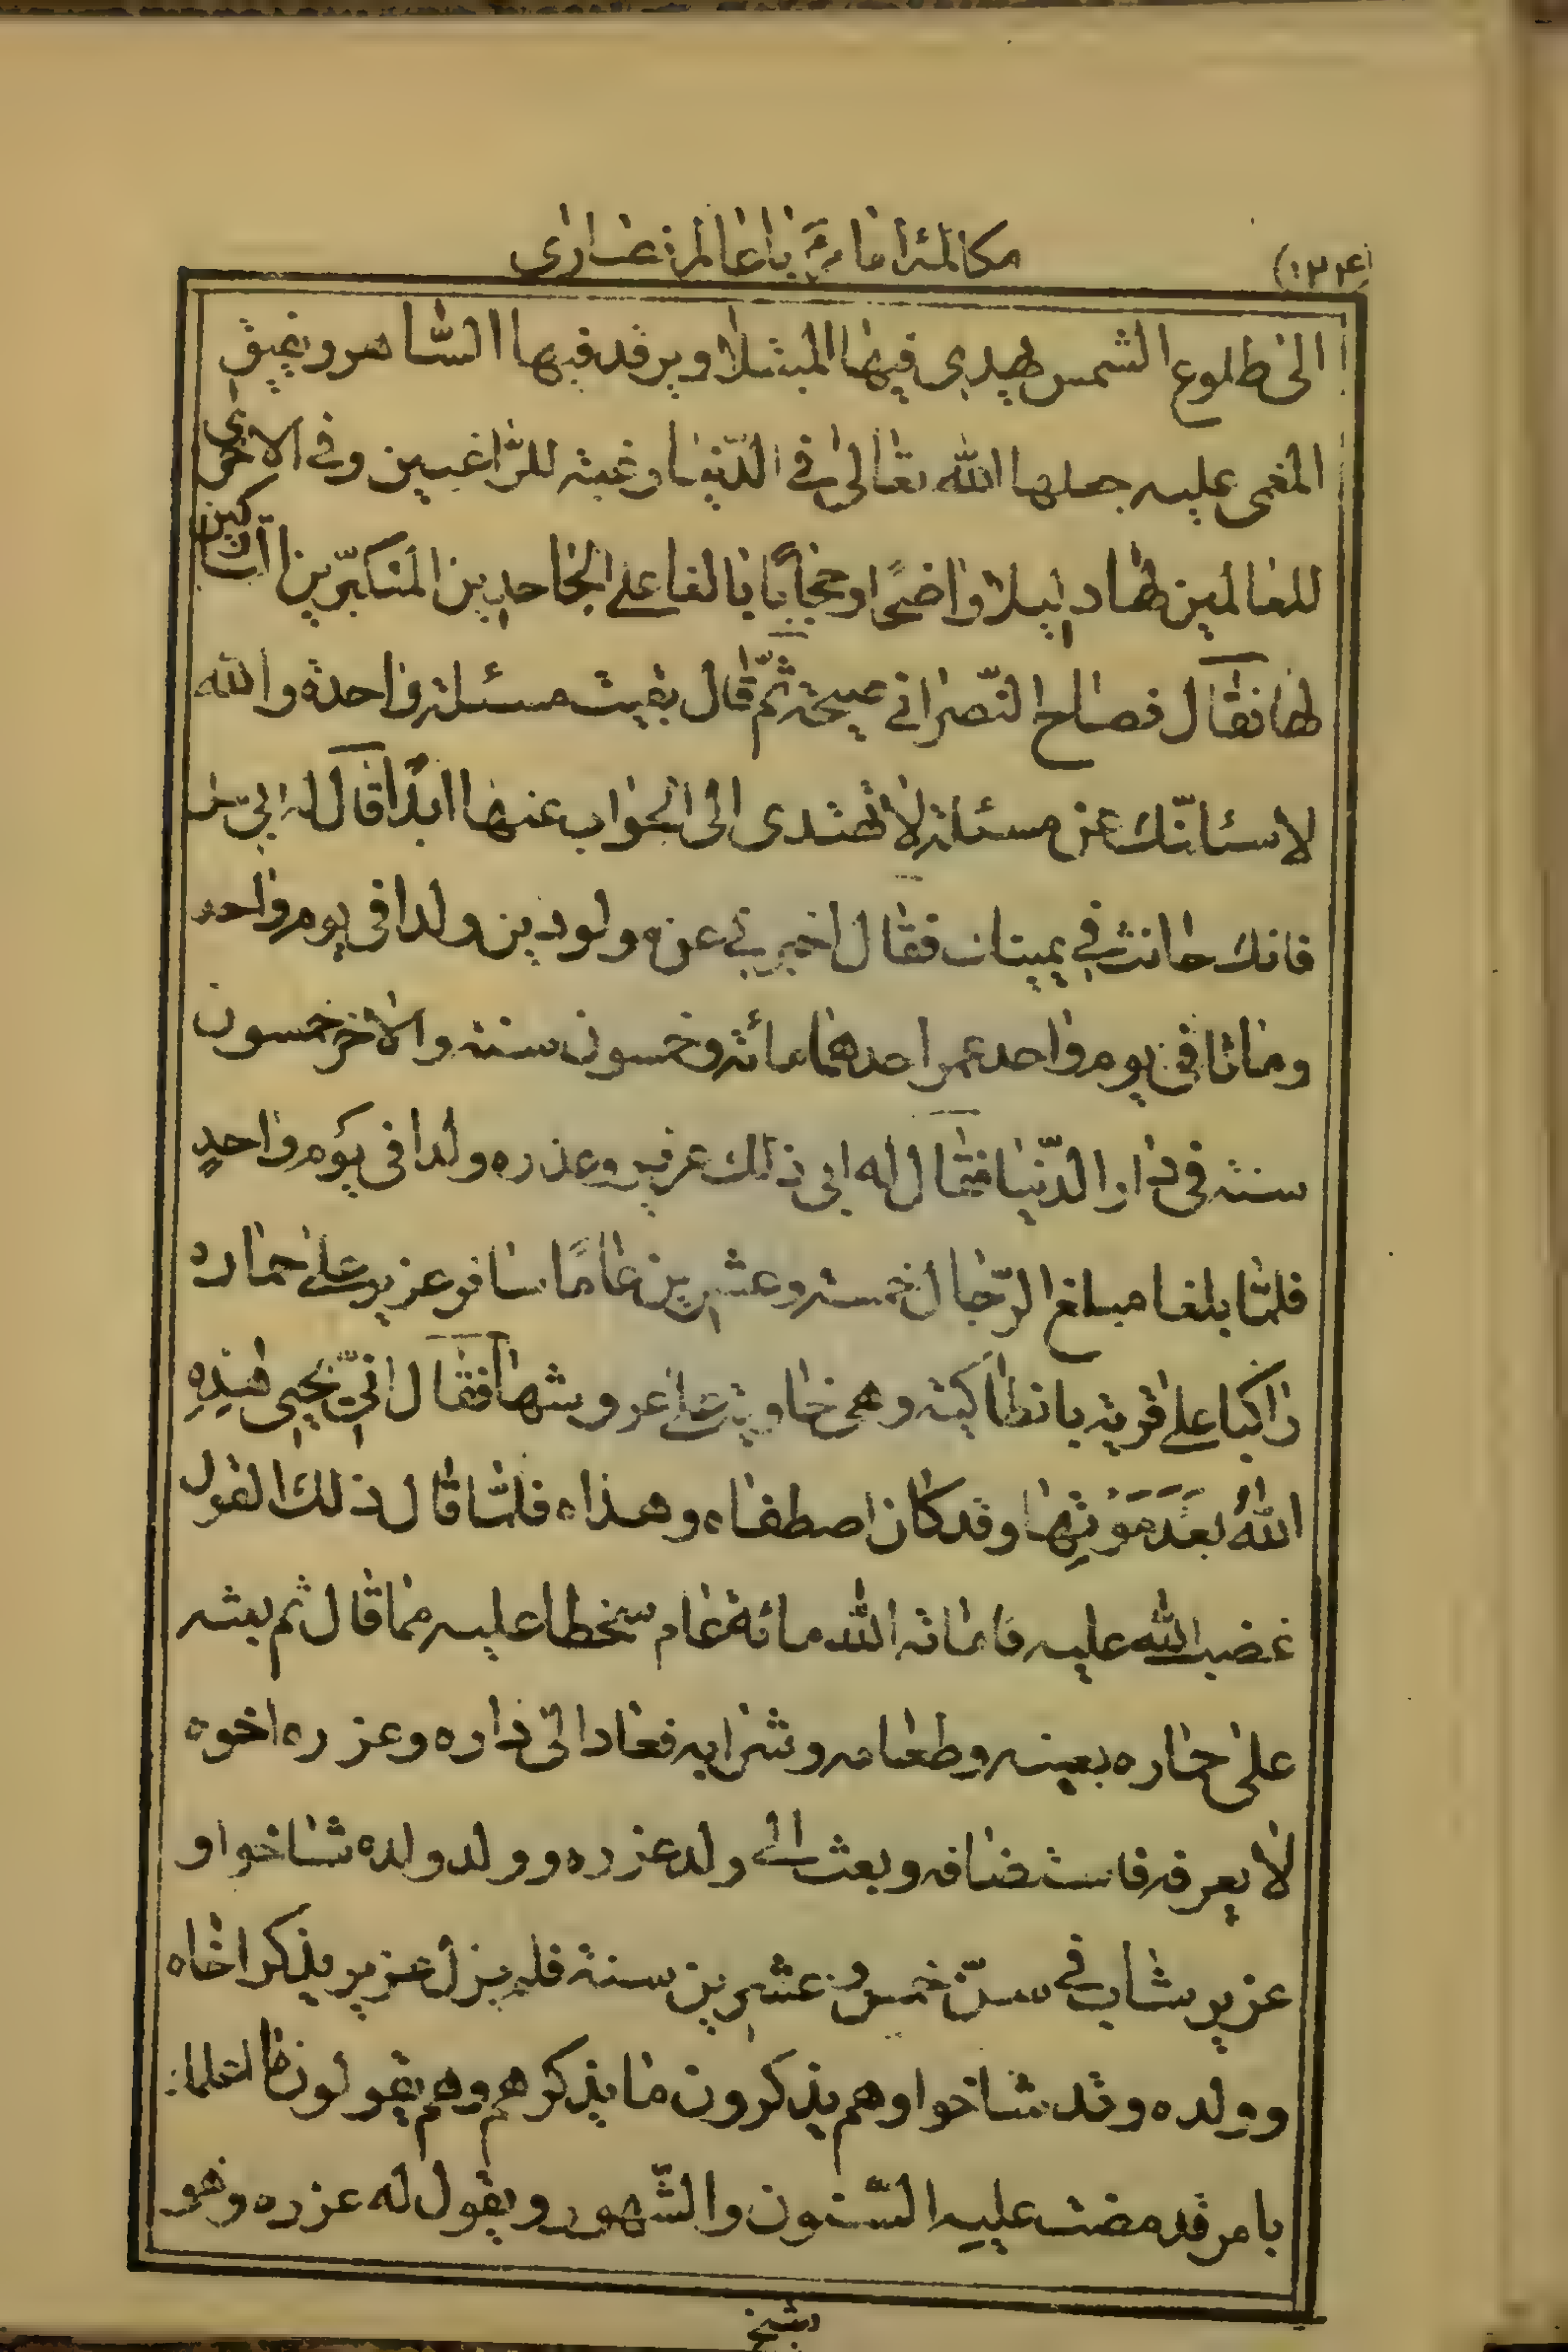 (١٣٤) مكالمة امام با عالم نصارى
الى طلوع الشمس يهدى فيها المبتلا ويرقد فيها الساهر ويفيق
المغمى عليه جعلها الله تعالى في الدّنيا رغبة للرّاغبين وفي الاخرى
للعالمين لها دليلا واضحًا وحجابًا بالغا على الجاحدين المتكبّرين التاركين
لها فقال فصاح النّصرانى صيحة ثمّ قال بقيت مسئلة واحدة والله
لاسئلنّك عن مسئلة لا تهتدى الى الجواب عنها ابدًا قال له ابى سل
فانك حانث في يمينك فقال اخبرنى عن مولودين ولدا فى يوم واحد
وماتا فى يوم واحد عمر احدهما مائة وخمسون سنة والاخر خمسون
سنة فى دار الدّنيا فقال له ابى ذلك عزير وعزره ولدا فى يوم واحدٍ
فلمّا بلغا مبلغ الرّجال خمسة وعشرين عامًا سافر عزير على حماره
راكبا على قرية بانطاكية وهى خاوية على عروشها فقال انّى يحيى هذِهِ
اللهُ بَعْدَ مَوْتِها وقد كان اصطفاه وهداه فلمّا قال ذلك القول
غضب الله عليه فاماته الله مائة عام سخطا عليه مما قال ثم بعثه
على حماره بعينه وطعامه وشرابه فعاد الى داره وعزره اخوه
لا يعرفه فاستضافه وبعث الى ولد عزره وولد ولده شاخوا و
عزير شاب فى سنّ خمس وعشرين سنة فلم يزل عزير يذكر اخاه
وولده وقد شاخوا وهم يذكرون ما يذكرهم وهم يقولون ما اعلمك
بامر قد مضت عليه السّنون والشّهور ويقول له عزره وهو
شيخ